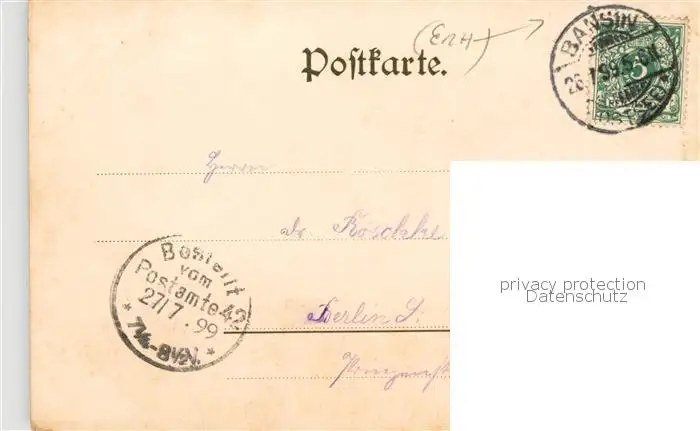 Postkarte.
BANSIN
OSTSEEBAD
5
Herrn
Dr. Roschke
Berlin S.
Bestellt
vom
Postamte 42
27/7.99
7¼-8½N.
privacy protection
Datenschutz